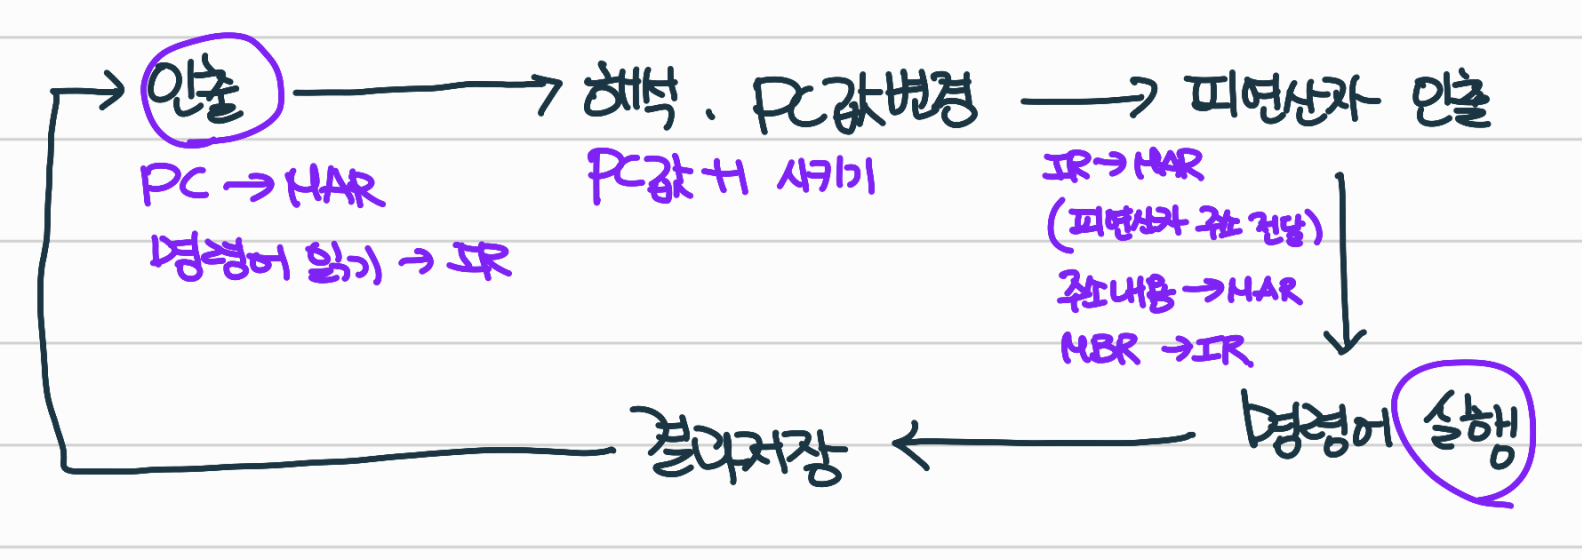 인출 → 해석、PC값변경 → 피연산자 인출
PC → MAR
명령어 읽기 → IR
PC값 +1 시키기
IR → MAR
(피연산자 주소 전달)
주소내용 → MAR
MBR → IR
명령어 실행
결과저장